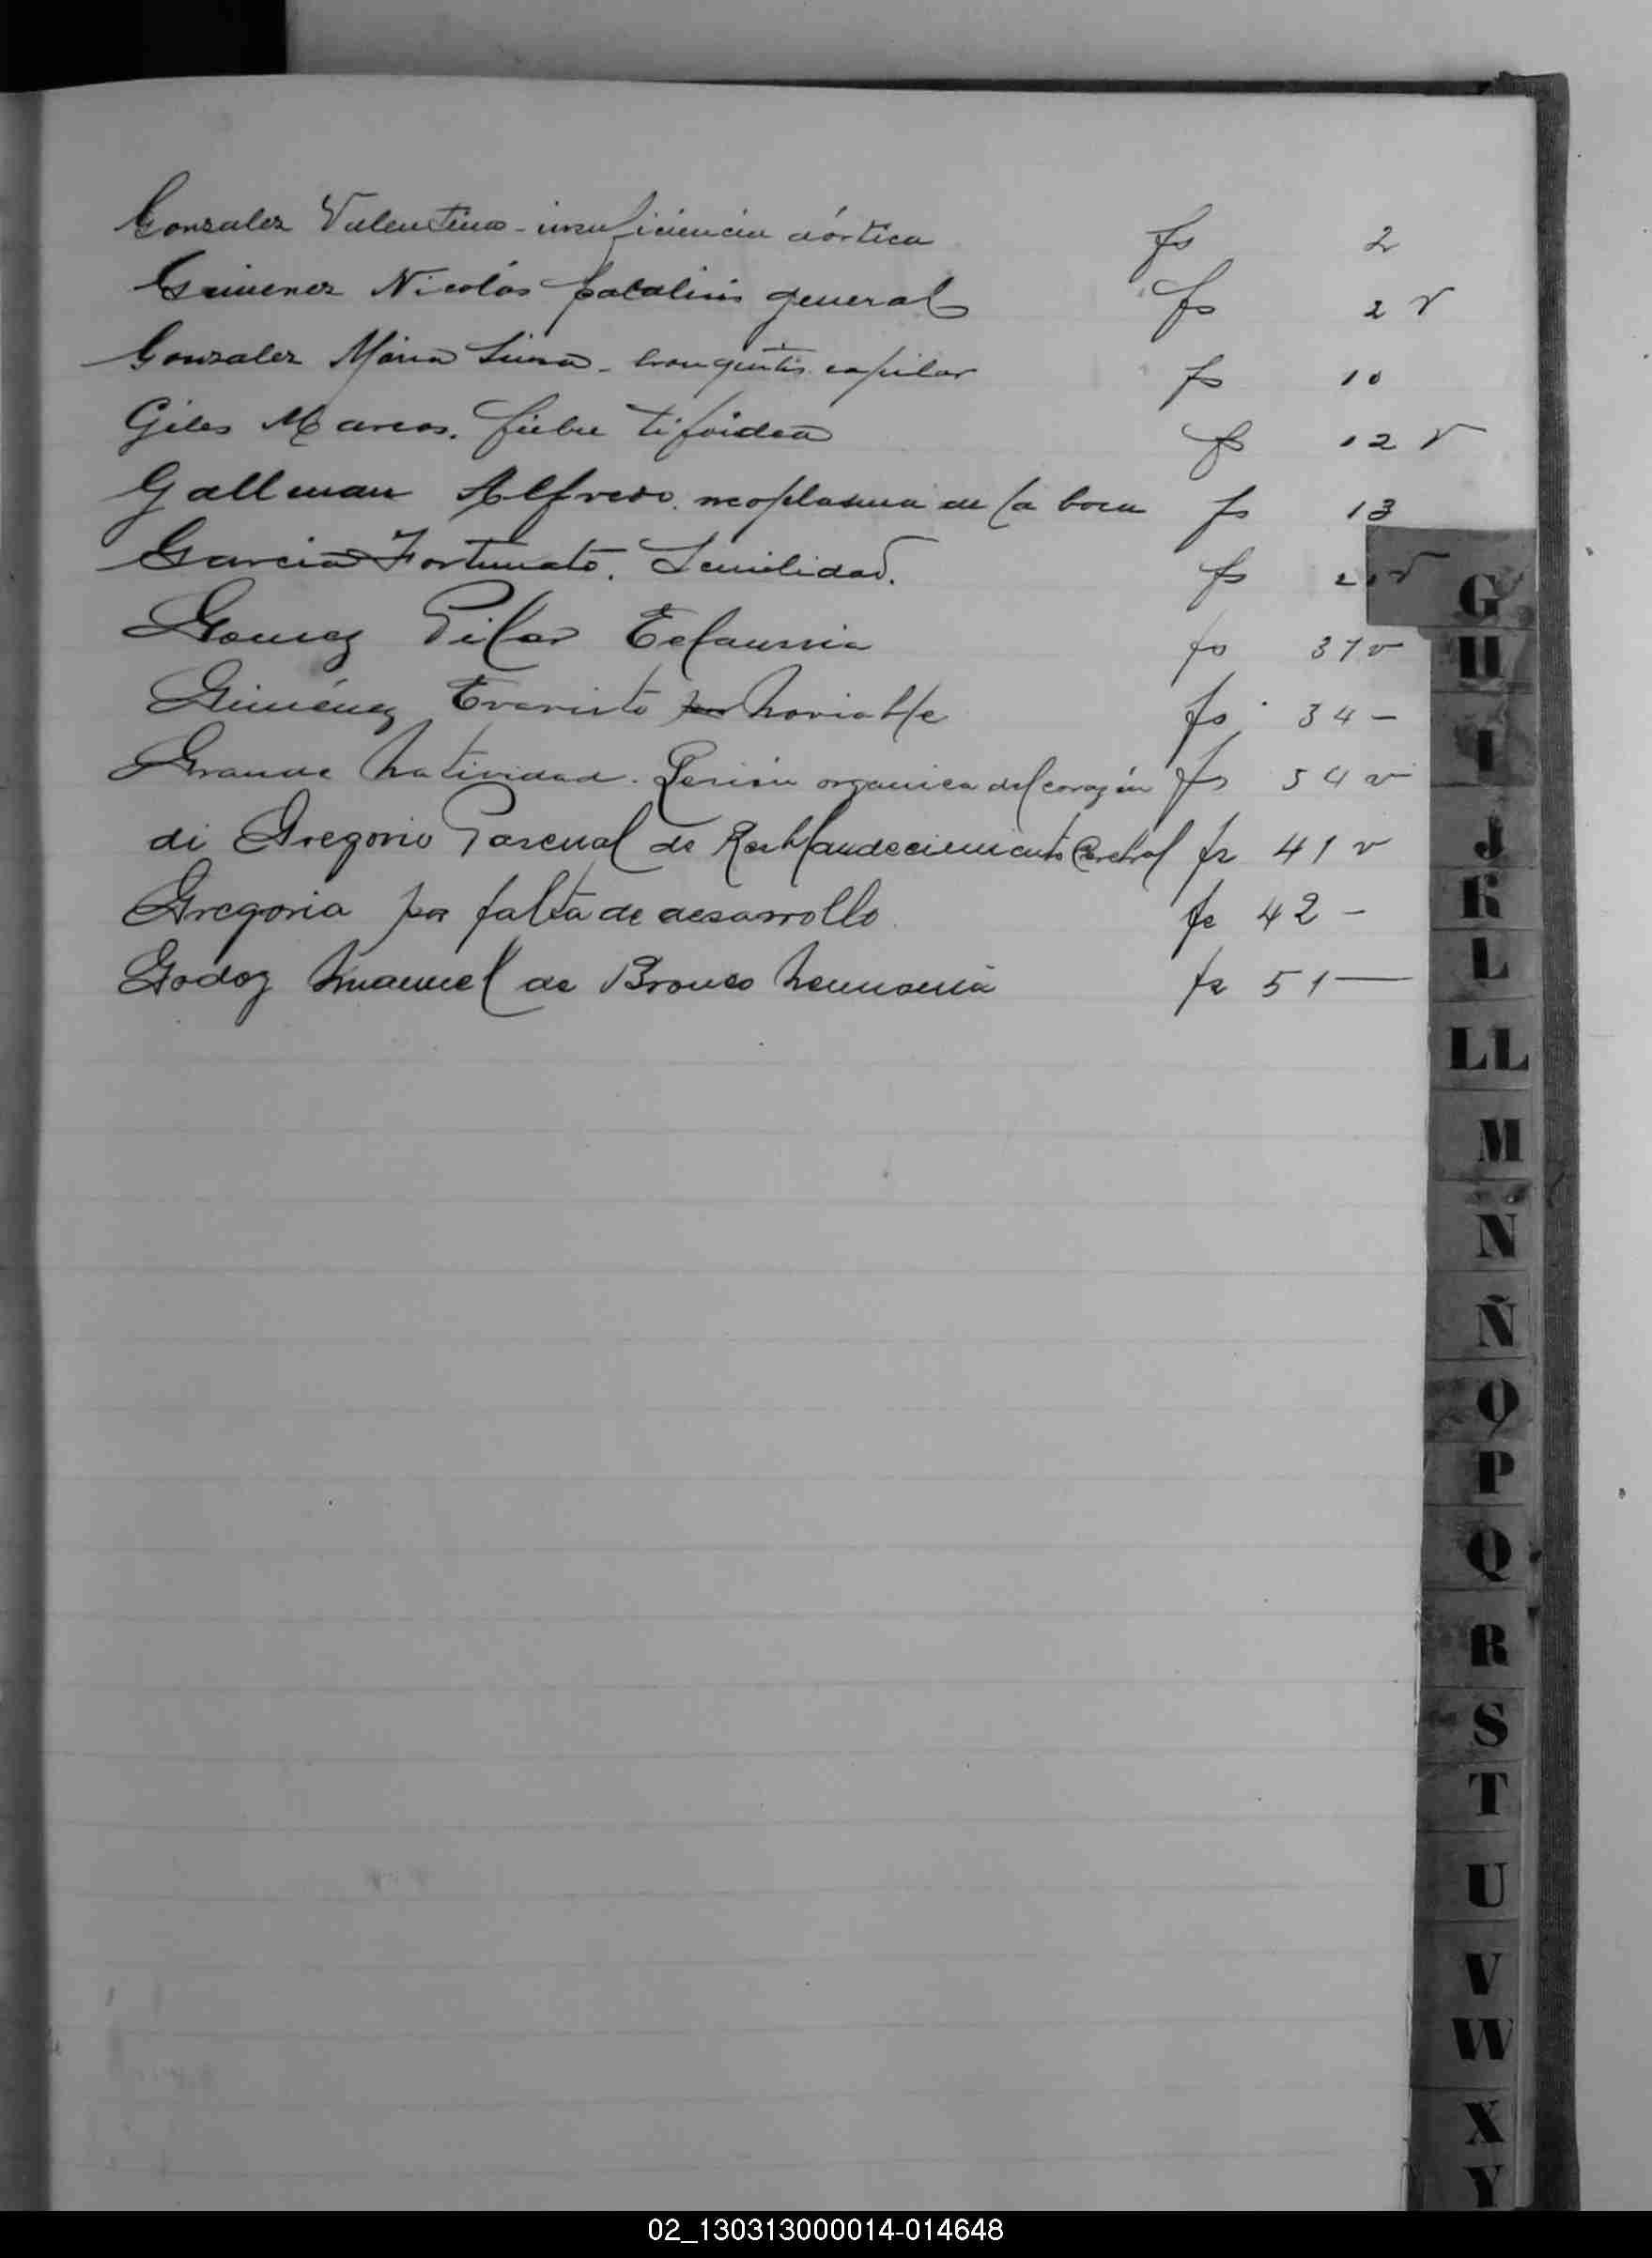 Gonzalez Valentina - insuficiencia aórtica fs 2
Gimenez Nicolás paralisis general fs 2 v
Gonzalez Maria Luisa - bronquitis capilar fs 10
Giles Marcos. fiebre tifoidea fs 12 v
Gallman Alfredo. neoplasma en la boca fs 13
Garcia Fortunato. Senilidad. fs v
Gomez Pilar Eclamsia fs 37 v
Giménez Evaristo fs 34 -
Grande Natividad. Lesión organica del corazón fs 54 v
di Gregorio Pascual de Reblandecimiento Cerebral fs 41 v
Gregoria por falta de desarrollo fs 42 -
Godoy Manuel de Bronco Neumonia fs 51 —
G
H
I
J
K
L
LL
M
N
Ñ
O
P
Q
R
S
T
U
V
W
X
Y
02_130313000014-014648